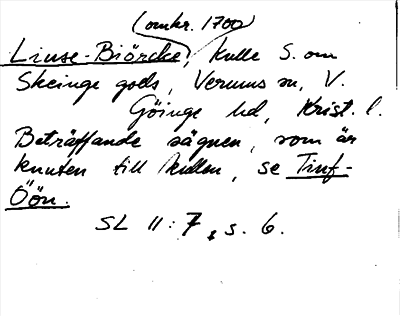 (omkr. 1700)
Liuse-Biörcke, kulle S. om
Skeinge gods, Verums sn, V.
Göinge hd, Krist. l.
Beträffande sägnen, som är
knuten till kullen, se Tinf-
Öön.
SL II: 7, s. 6.